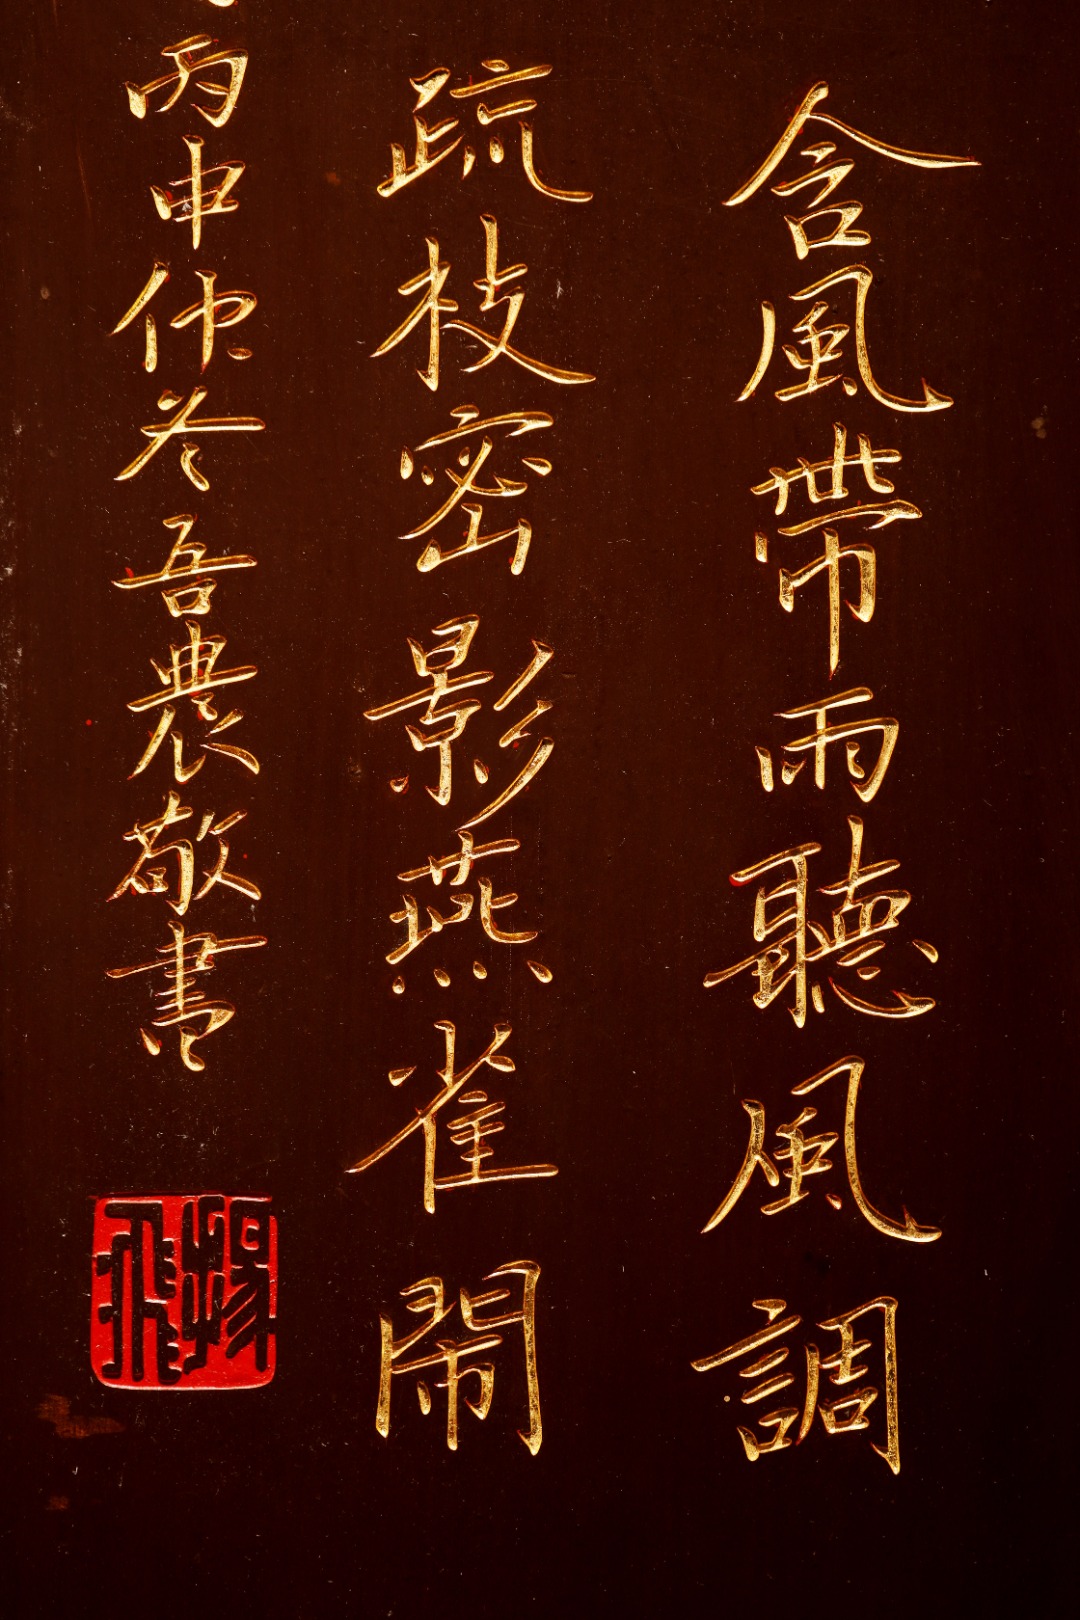 含風帶雨聽風調
疏枝密影燕雀鬧
丙申仲冬吾農敬書